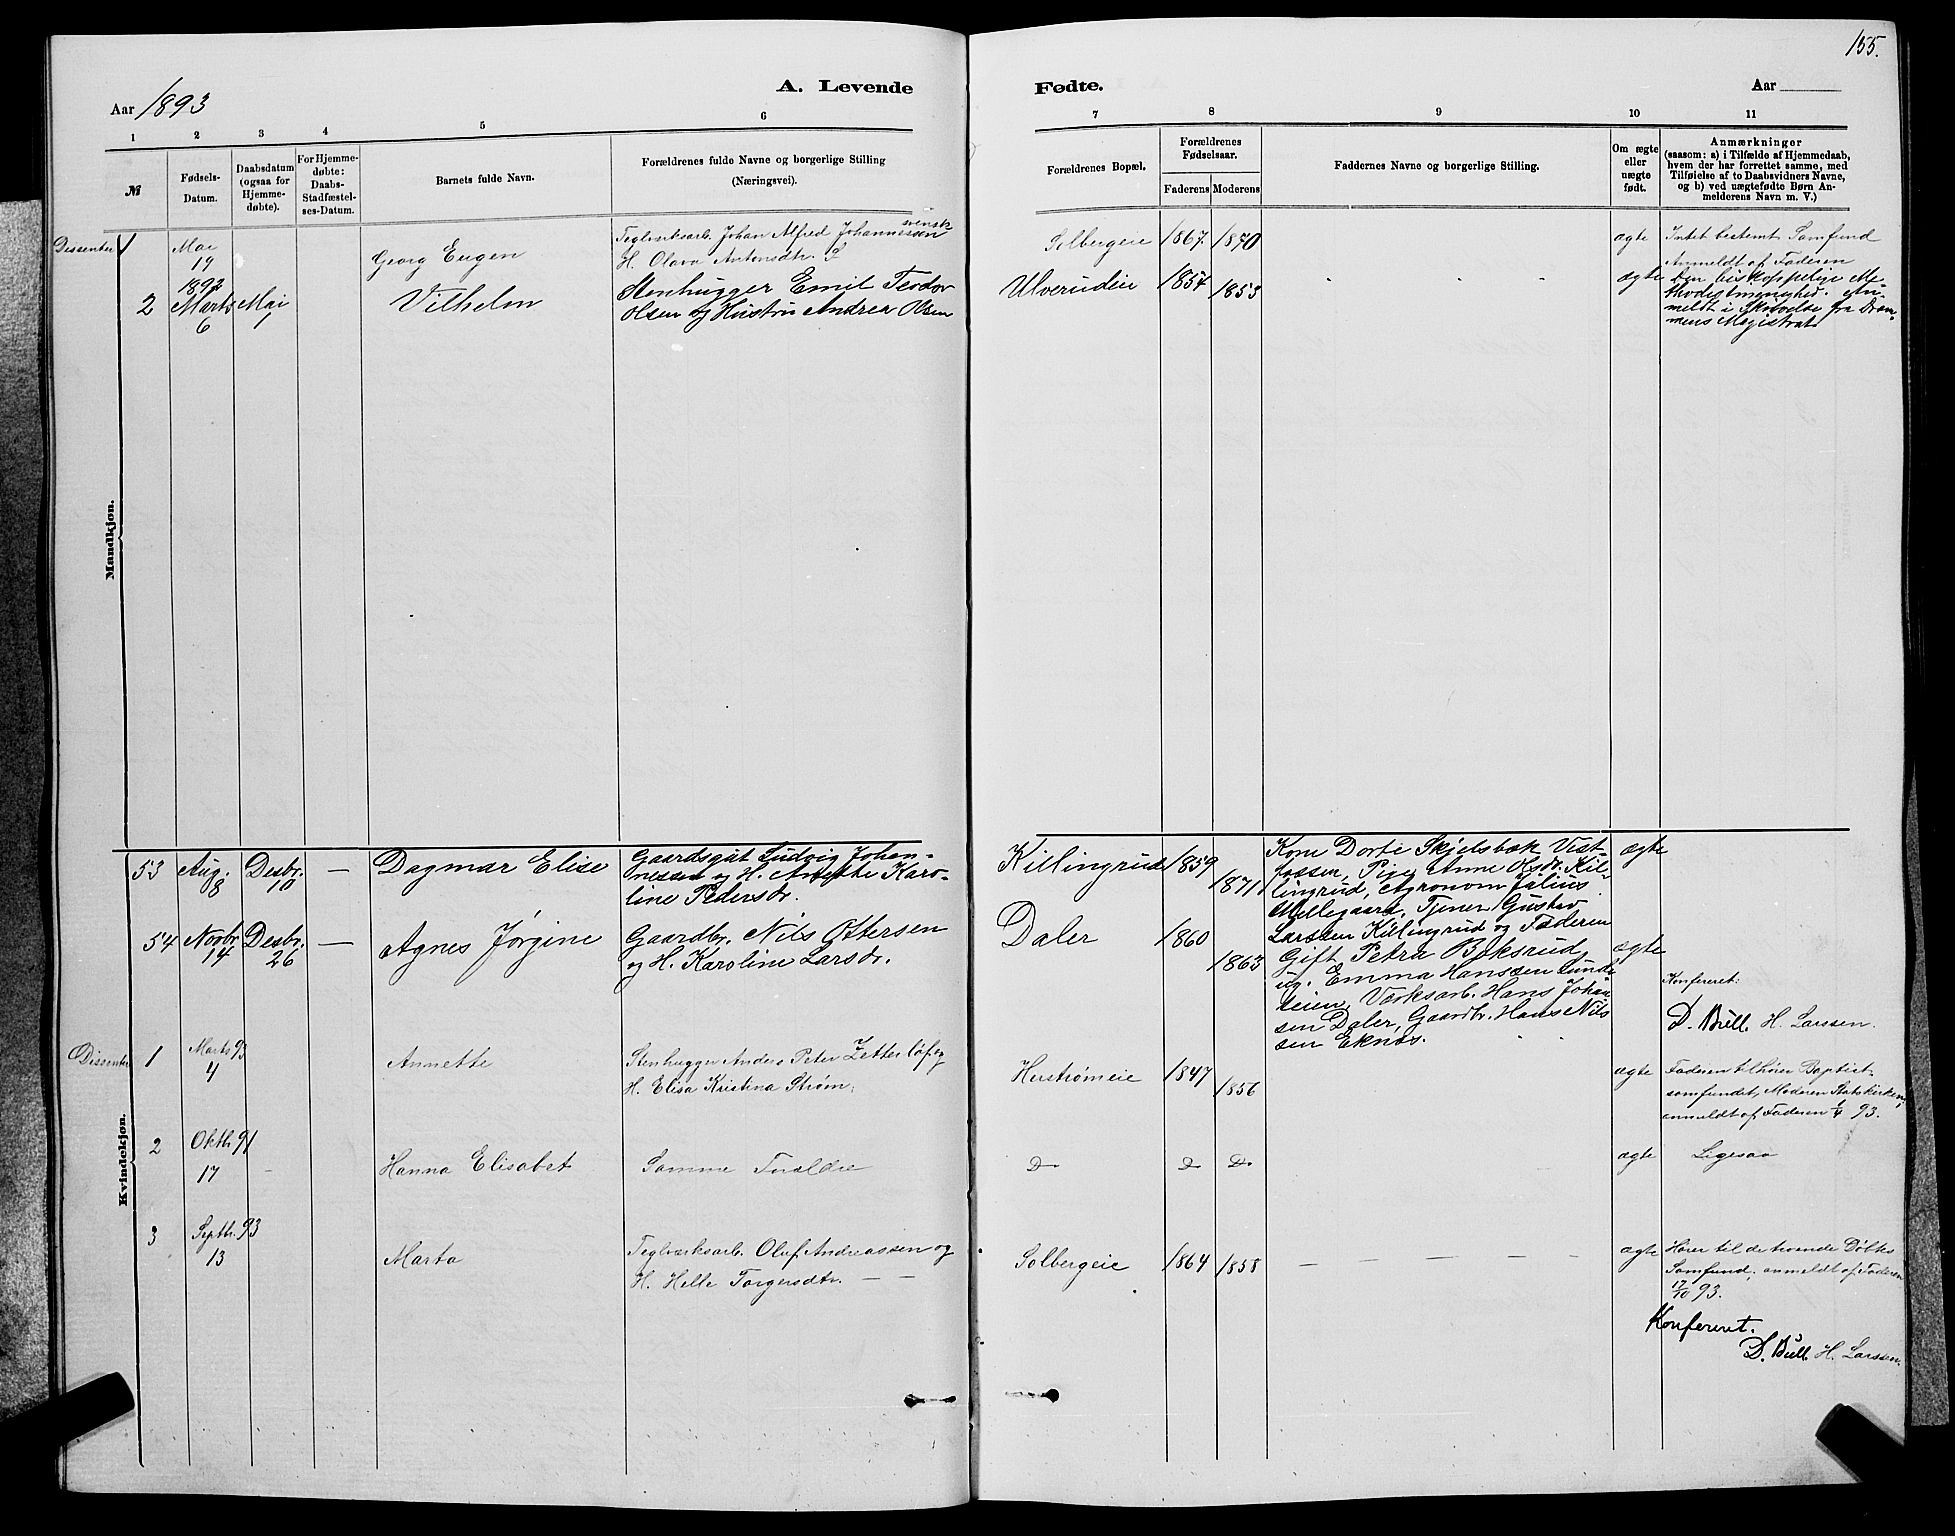 155.
Aar 1893
A. Levende
Fødte.
Aar
1 2 3 4 5 6
7 8 9 10 11
№
Fødsels-
Datum.
Daabsdatum
(ogsaa for
Hjemme-
døbte).
For Hjemme-
døbte:
Daabs-
Stadfæstel-
ses-Datum.
Barnets fulde Navn.
Forældrenes fulde Navne og borgerlige Stilling
(Næringsvei).
Forældrenes Bopæl.
Forældrenes
Fødselsaar.
Faderens Moderens
Faddernes Navne og borgerlige Stilling.
Om ægte
eller
uægte
født.
Anmærkninger
(saasom: a) i Tilfælde af Hjemmedaab,
hvem der har forrettet samme, med
Tilføielse af to Daabsvidners Navne,
og b) ved uægtefødte Børn An-
melderens Navn m. V.)
Mandkjøn.
Dissenter
1
Mai
19
Georg Eugen
svensk
Teglværksarb. Johan Alfred Johannessen
H. Olava Antonsdtr.
Solbergeie 1867 1870
ægte
Intet bestemt Samfund
Anmeldt af Faderen
2
1892
Marts
6
Mai
Vilhelm
Stenhugger Emil Teodor
Olsen og Hustru Andrea Olsen
Ulverudeie 1857 1853
ægte
Den biskoppelige Me-
thodistmenighed. An-
meldt i Skrivelse fra Dram-
mens Magistrat
Kvindekjøn.
53 Aug. 8 Desbr. 10 —
Dagmar Elise
Gaardsgut Ludvig Johan-
nessen og H. Anette Karo-
line Pedersdr.
Killingrud 1859 1871
Kone Dorte Skjelsbæk Vest-
fossen, Pige Anne Olsdr. Kil-
lingrud, Agronom Julius
Millegaard, Tjener Gustav
Larssen Killingrud og Faderen
ægte
54 Novbr. 14 Desbr. 26 —
Agnes Jørgine
Gaardbr. Nils Ottersen
og H. Karoline Larsdr.
Daler 1860 1863
Gift Petra Boksrud,
ug. Emma Hanssen Lunde
seien, Værksarb. Hans Johan
sen Daler, Gaardbr. Hans Nils
sen Eknes.
ægte
Konfereret:
D. Bull. H. Larssen.
Dissenter
1
Marts 93
4
Annette
Stenhugger Anders Peter Zetterløf og
H. Elisa Kristina Strøm.
Herstrømeie 1847 1856
ægte
Faderen tilhører Baptist-
samfundet, Moderen Statskirken,
anmeldt af Faderen 1/4 93.
2
Oktbr. 91
17
Hanna Elisabet
Samme Foraldre
D D D
ægte
Ligesaa
3
Septbr. 93
13
Marta
Teglværksarb. Oluf Andreassen og
H. Helle Torgersdtr. — —
Solbergeie 1864 1858
— — — — —
ægte
Hører til de troende Døbtes
Samfund, anmeldt af Faderen
17/10 93.
Konfereret.
D. Bull. H. Larssen.